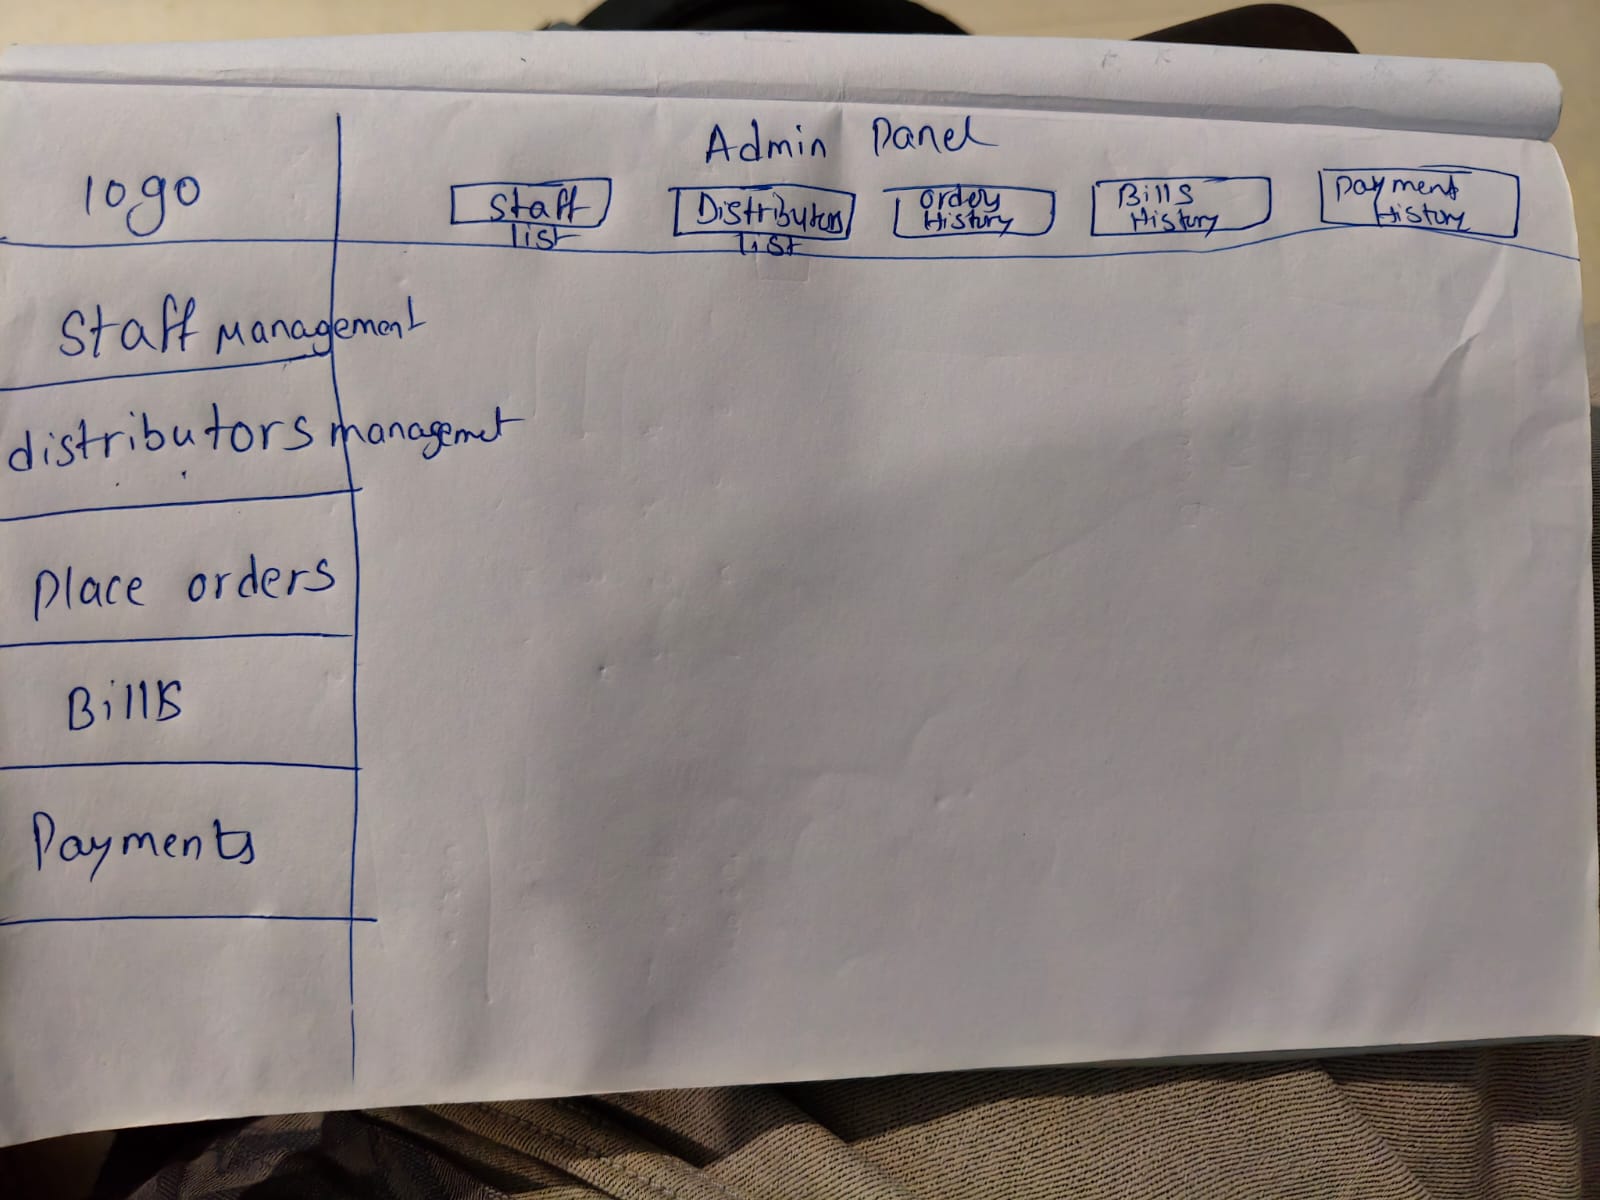 Admin Panel
logo
Staff
list
Distributors
list
order
History
Bills
History
Payment
History
Staff Management
distributors managemet
Place orders
Bills
Payments